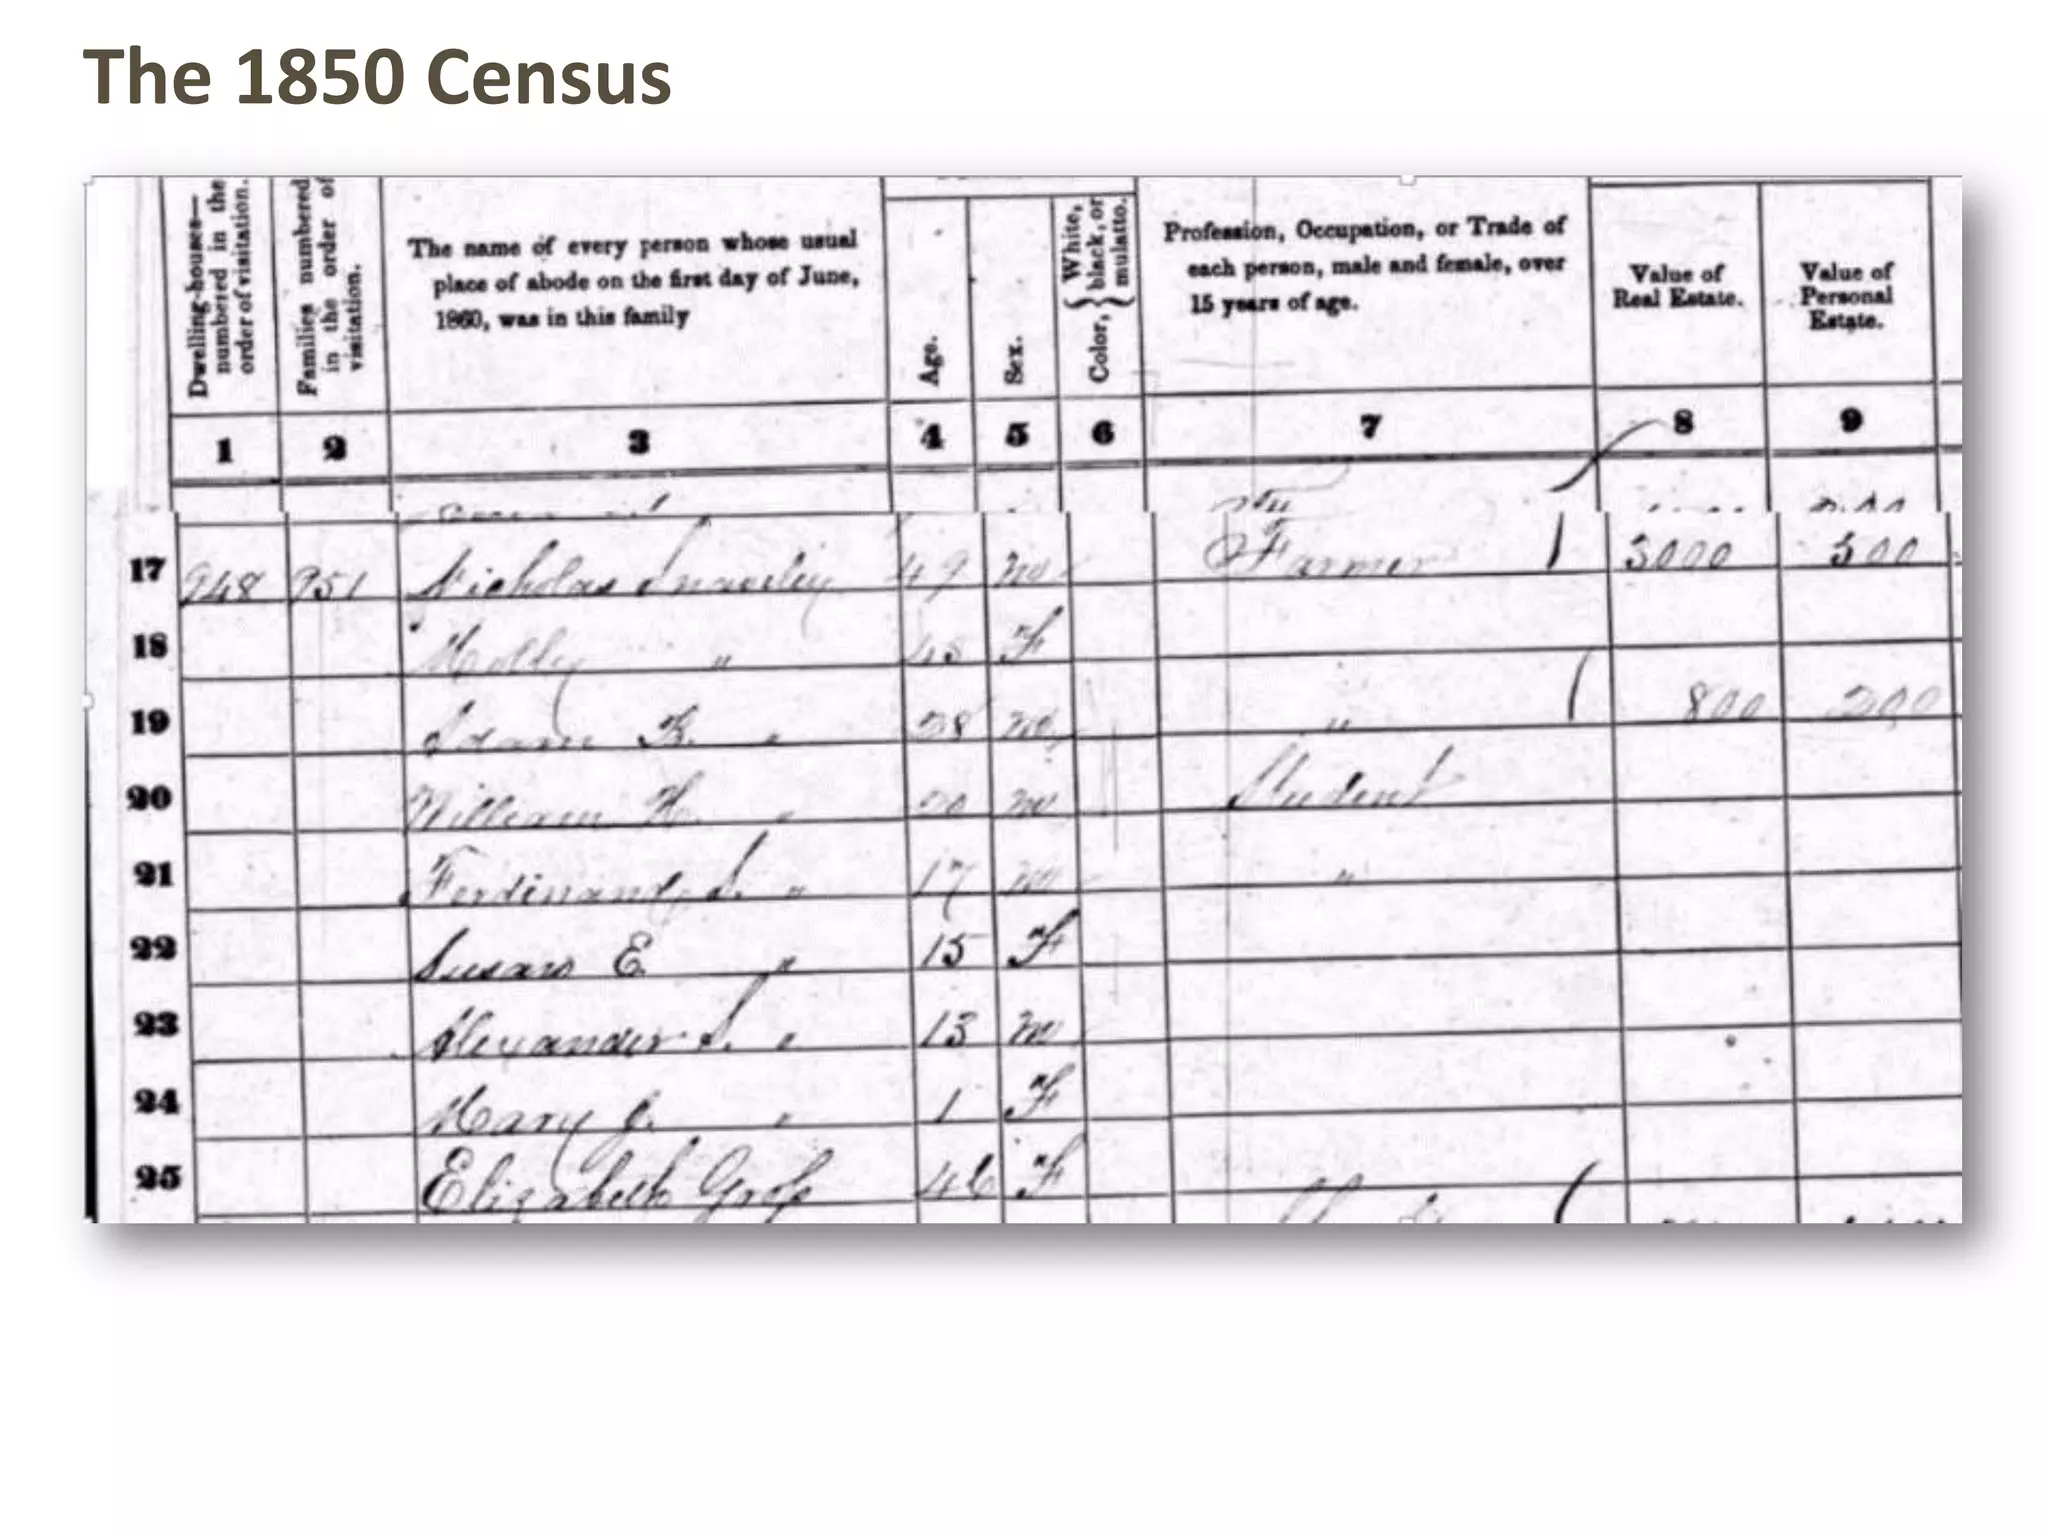 The 1850 Census
Dwelling-houses—numbered in the order of visitation.
Families numbered in the order of visitation.
The name of every person whose usual
place of abode on the first day of June,
1860, was in this family
Age.
Sex.
Color, { White, black, or mulatto.
Profession, Occupation, or Trade of
each person, male and female, over
15 years of age.
Value of
Real Estate.
Value of
Personal
Estate.
1 2 3 4 5 6 7 8 9
17 948 951 Nicholas 49 m Farmer 3000 500
18 " 45 F
19 Adam " 28 m " 800 200
20 William H. " 20 m Student
21 Ferdinand S. " 17 m "
22 Susan E. " 15 F
23 Alexander S. " 13 m
24 Mary J. " 1 F
25 Elizabeth Gross 46 F